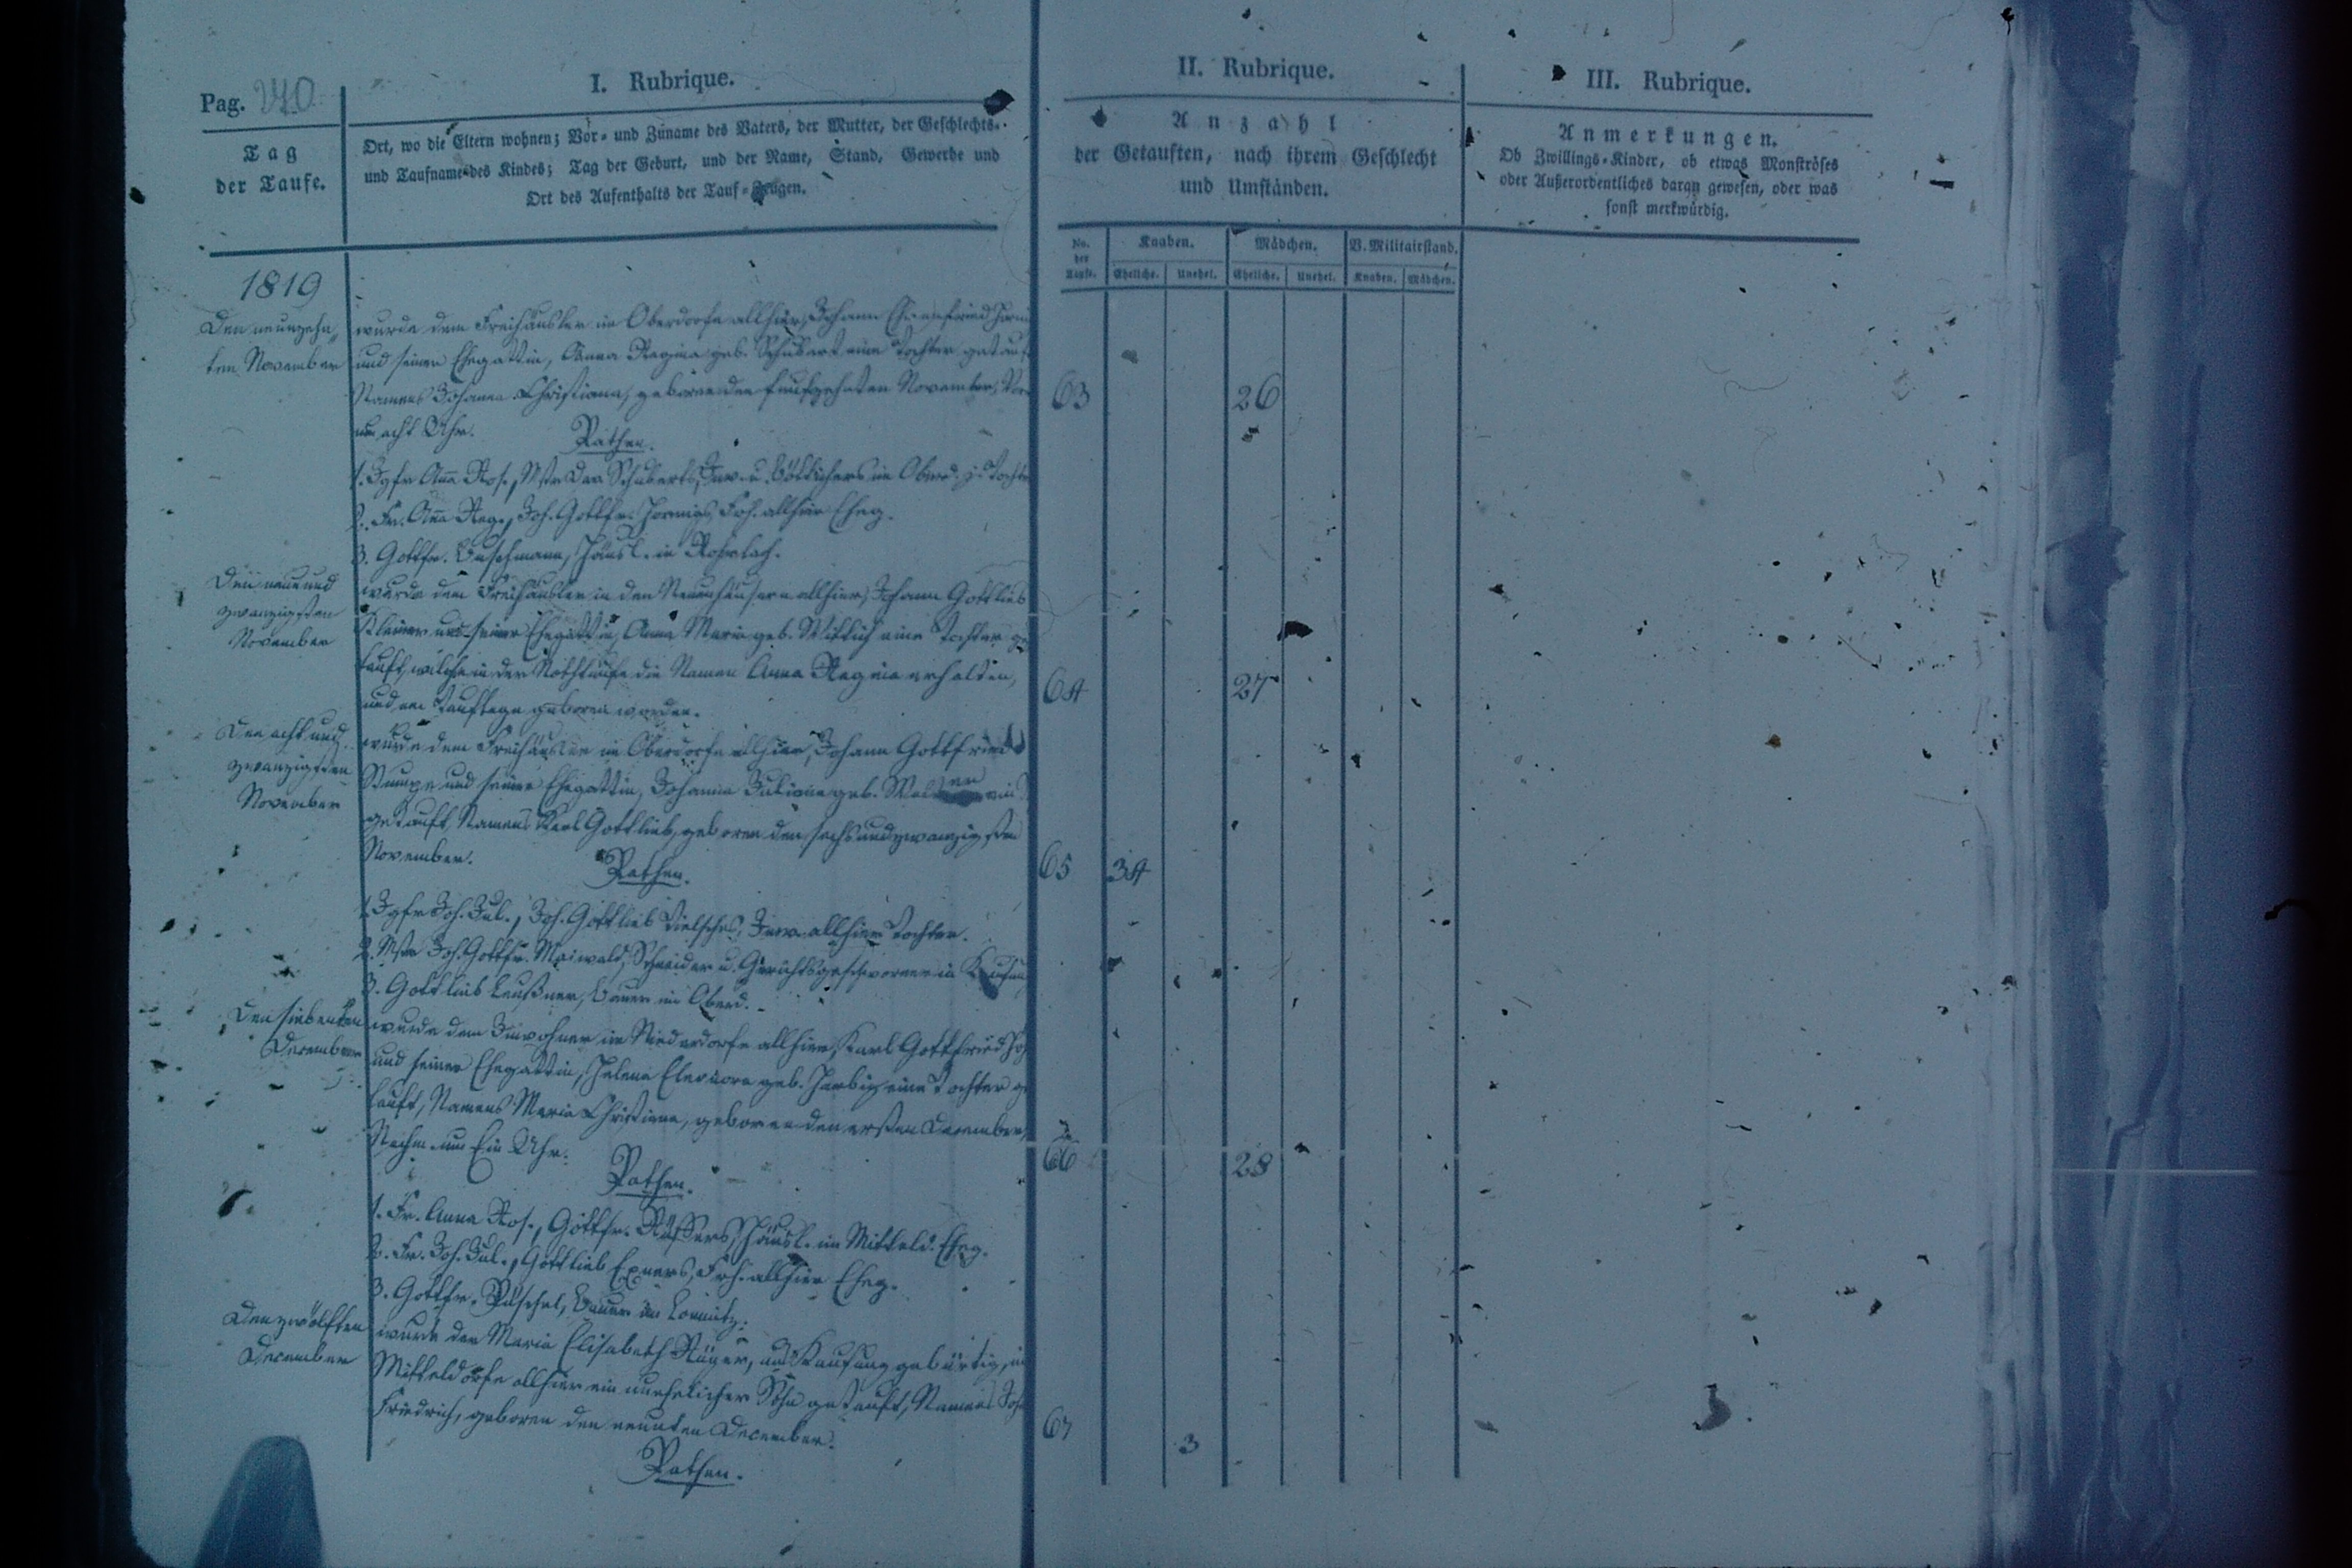 Pag. 270
I. Rubrique.
II. Rubrique.
III. Rubrique.
Tag
der Taufe.
Ort, wo die Eltern wohnen; Vor- und Zuname des Vaters, der Mutter, der Geschlechts-
und Taufname des Kindes; Tag der Geburt, und der Name, Stand, Gewerbe und
Ort des Aufenthalts der Tauf-Zeugen.
Anzahl
der Getauften, nach ihrem Geschlecht
und Umständen.
Anmerkungen.
Ob Zwillings-Kinder, ob etwas Monströses
oder Außerordentliches daran gewesen, oder was
sonst merkwürdig.
No. der Taufe.
Knaben. Mädchen. V. Militairstand.
Eheliche. Unehel. Eheliche. Unehel. Knaben. Mädchen.
1819
Den neunzehn
ten November
wurde dem Freihäusler im Oberdorfe allhier, Johann Ehrenfried
und seiner Ehegattin, Anna Regina geb. Schubert eine Tochter getauf
Namens Johanna Christiana, geboren den funfzehnten November,
um acht Uhr.
Pathen.
63 26
1. Jgfr Anna Ros., Mstr Schuberts, Inw. u. Böttichers im Oberd. Tochte
2. Fr. Anna Reg., Joh. Gottfr. Hornigs, Frh. allhier Eheg.
3. Gottfr. Buschmann, Häusl. in Rohrlach.
Den neun und
zwanzigsten
November
wurde dem Freihäusler in den Neuenhäusern allhier, Johann Gottlieb
Kleiner und seiner Ehegattin, Anna Maria geb. Wittich eine Tochter ge
tauft, welche in der Nothtaufe die Namen Anna Regina erhalten,
und am Tauftage geboren worden.
64 27
Den acht und
zwanzigsten
November
wurde dem Freihäusler im Oberdorfe allhier, Johann Gottfried
Stumpe und seiner Ehegattin, Johanna Juliane geb. ein
getauft, Namens Karl Gottlieb, geboren den sechsundzwanzigsten
November.
Pathen.
65 34
1. Jgfr Joh. Jul., Joh. Gottlieb Dielschers, Inw. allhier Tochter.
2. Mstr Joh. Gottfr. Maiwald, Schneider u. Gerichtsgeschworner in
3. Gottlieb Leußner, Bauer im Oberd.
Den siebenten
December
wurde dem Inwohner im Niederdorfe allhier, Karl Gottfried
und seiner Ehegattin, Helena Eleonore geb. Herbig eine Tochter ge
tauft, Namens Maria Christiana, geboren den ersten December,
Nachm. um Ein Uhr.
Pathen.
66 28
1. Fr. Anna Ros., Gottfr. Häusl. im Mitteld. Eheg.
2. Fr. Joh. Jul., Gottlieb Exners, Frh. allhier Eheg.
3. Gottfr. Püschel, Bauer in Lomnitz.
Den zwölften
December
wurde der Maria Elisabeth aus Kaufung gebürtig, im
Mitteldorfe allhier ein unehelicher Sohn getauft, Namens Joh
Friedrich, geboren den neunten December.
Pathen.
67 3